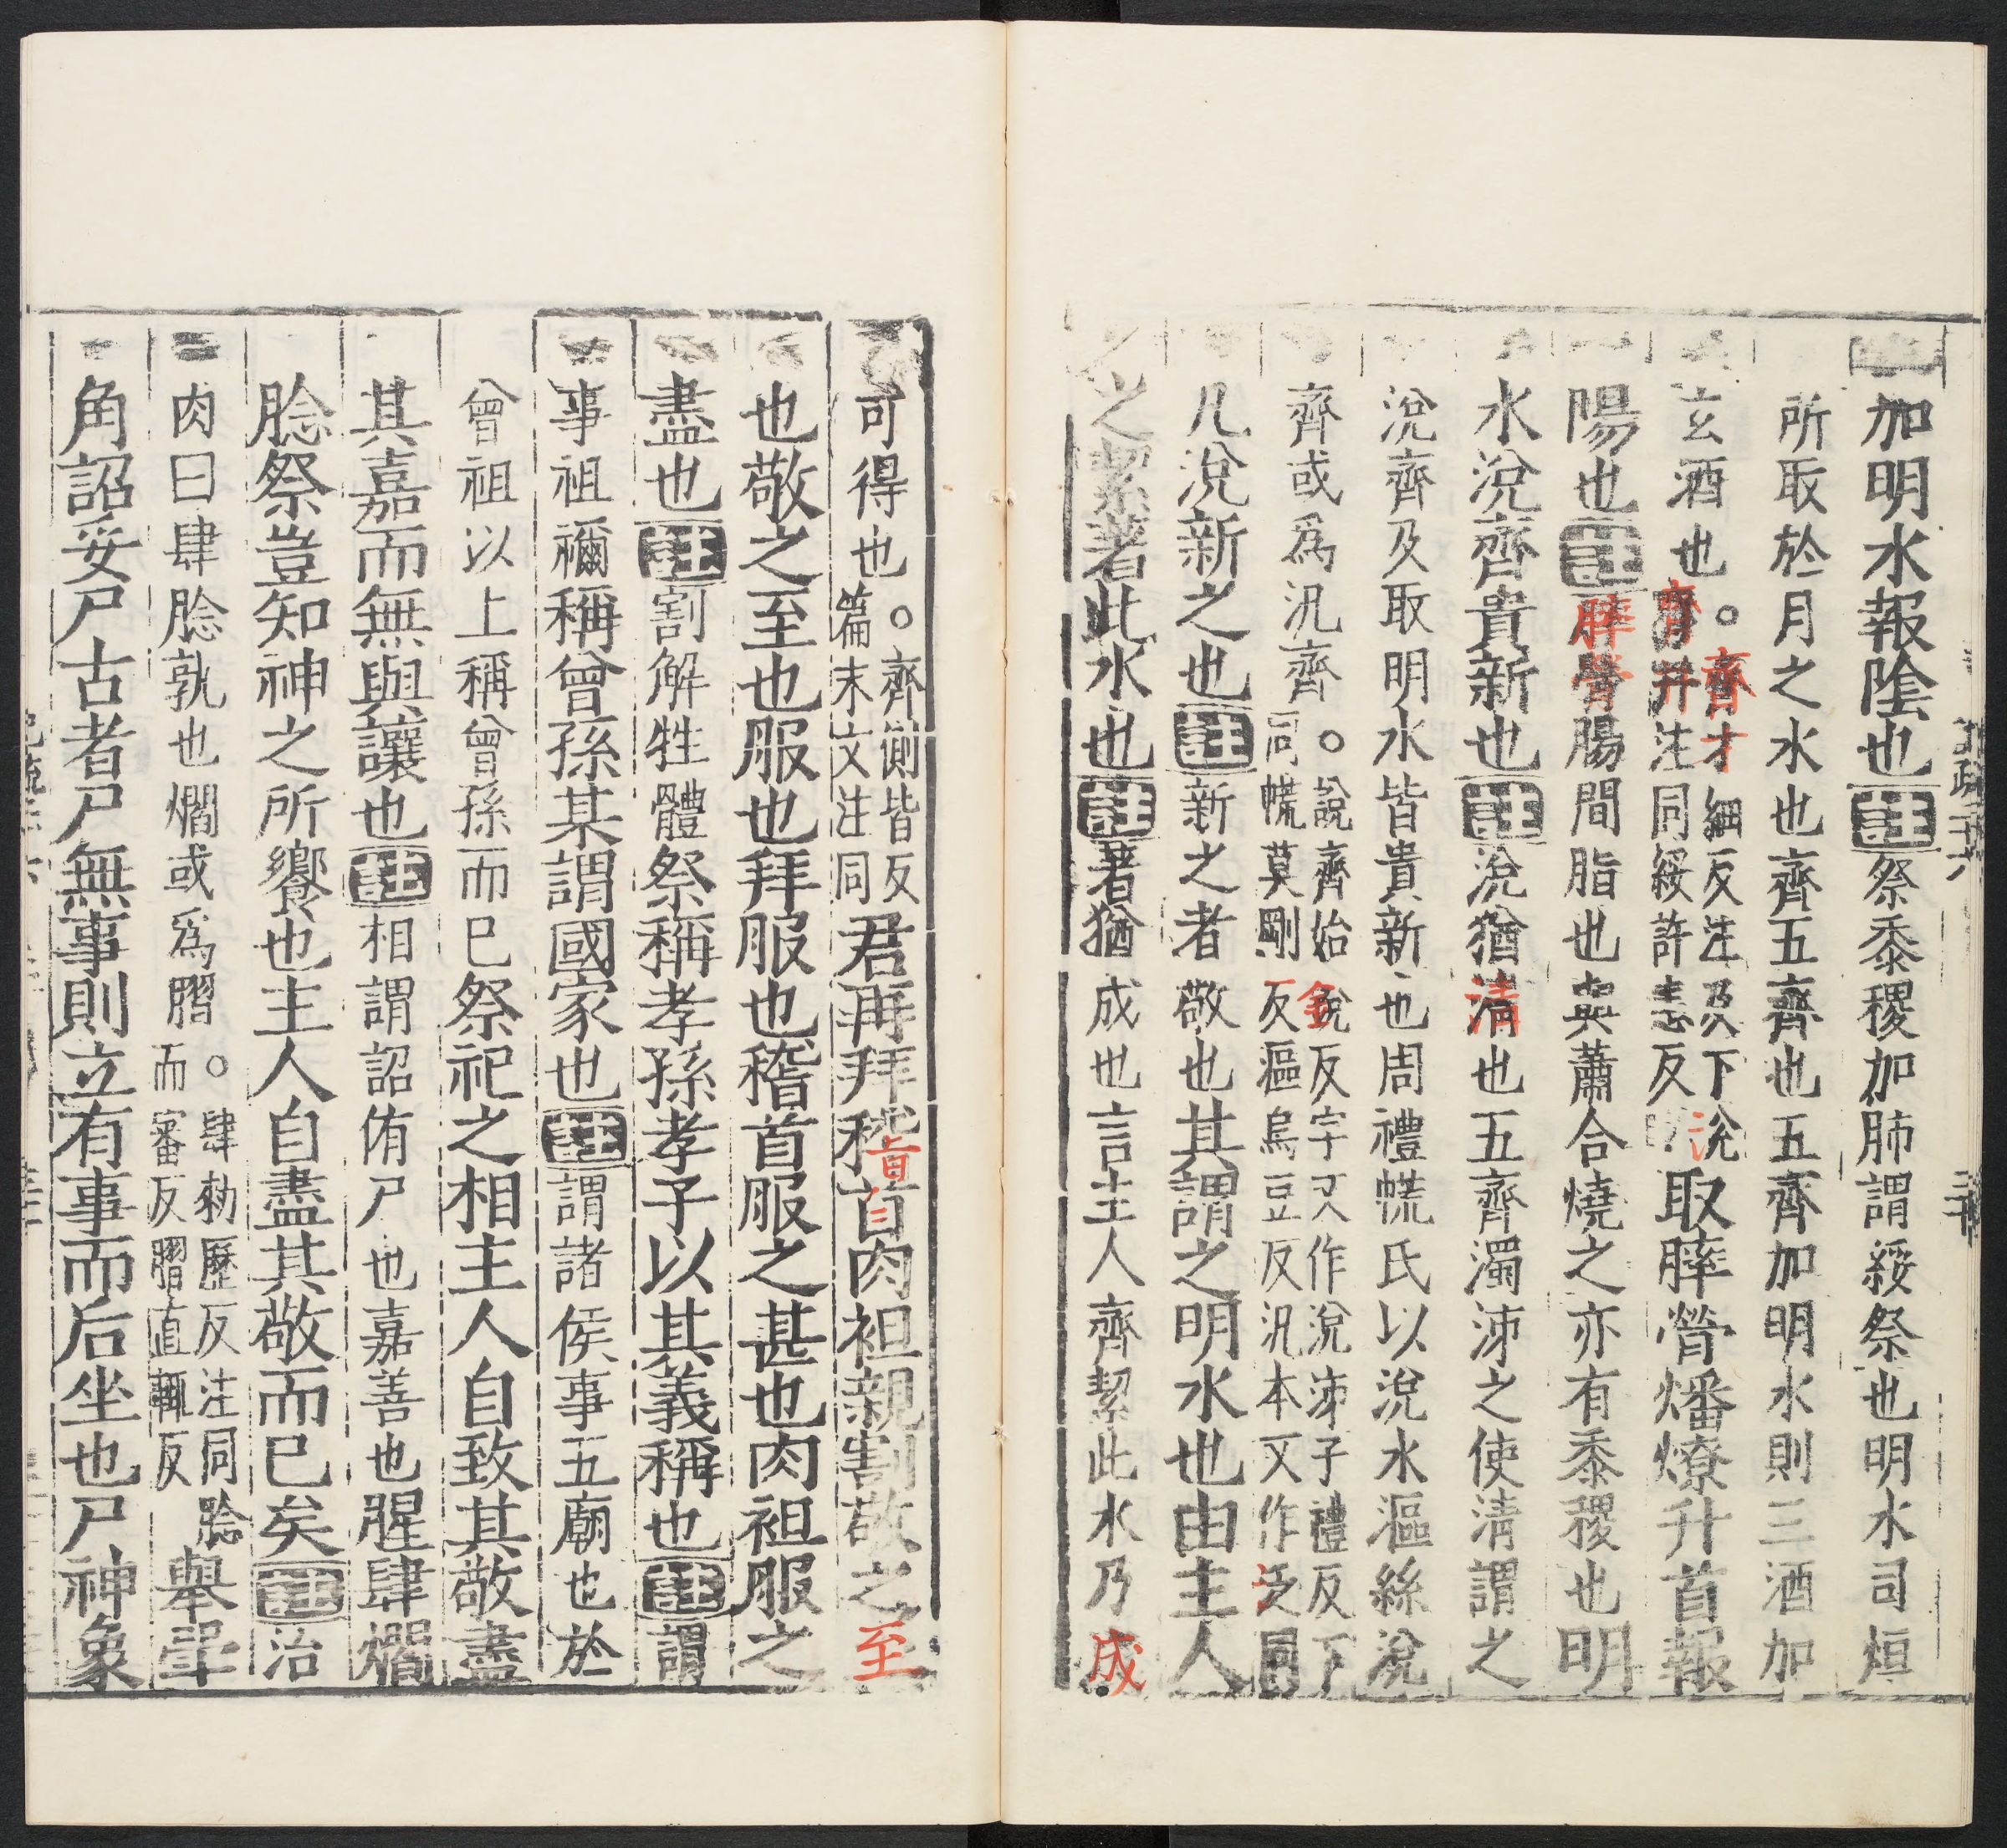 加明水報陰也註祭黍稷加肺謂綏祭也明水司烜
所取於月之水也齊五齊也五齊加明水則三酒加
玄酒也○齊才細反注及下涗
膋并注同綏許恚反
取膟膋燔燎升首報
陽也註膟膋腸間脂也與蕭合燒之亦有黍稷也明
水涗齊貴新也註涗猶清也五齊濁泲之使清謂之
涗齊及取明水皆貴新也周禮㡆氏以涗水漚絲涗
齊或爲汎齊○說齊始銳反字又作涗泲子禮反下
同㡆莫剛反漚烏豆反汎本又作泛同
凡涗新之也註新之者敬也其謂之明水也由主人
之絜著此水也註著猶成也言主人齊絜此水乃成
可得也○齊側皆反
篇末文注同
君再拜稽首肉袒親割敬之至
也敬之至也服也拜服也稽首服之甚也肉袒服之
盡也註割解牲體祭稱孝孫孝子以其義稱也註謂
事祖禰稱曾孫某謂國家也註謂諸侯事五廟也於
曾祖以上稱曾孫而已祭祀之相主人自致其敬盡
其嘉而無與讓也註相謂詔侑尸也嘉善也腥肆爓
腍祭豈知神之所饗也主人自盡其敬而已矣註治
肉曰肆腍孰也爓或爲䐑○肆勑歷反注同腍
而審反䐑直輒反
舉斝
角詔妥尸古者尸無事則立有事而后坐也尸神象